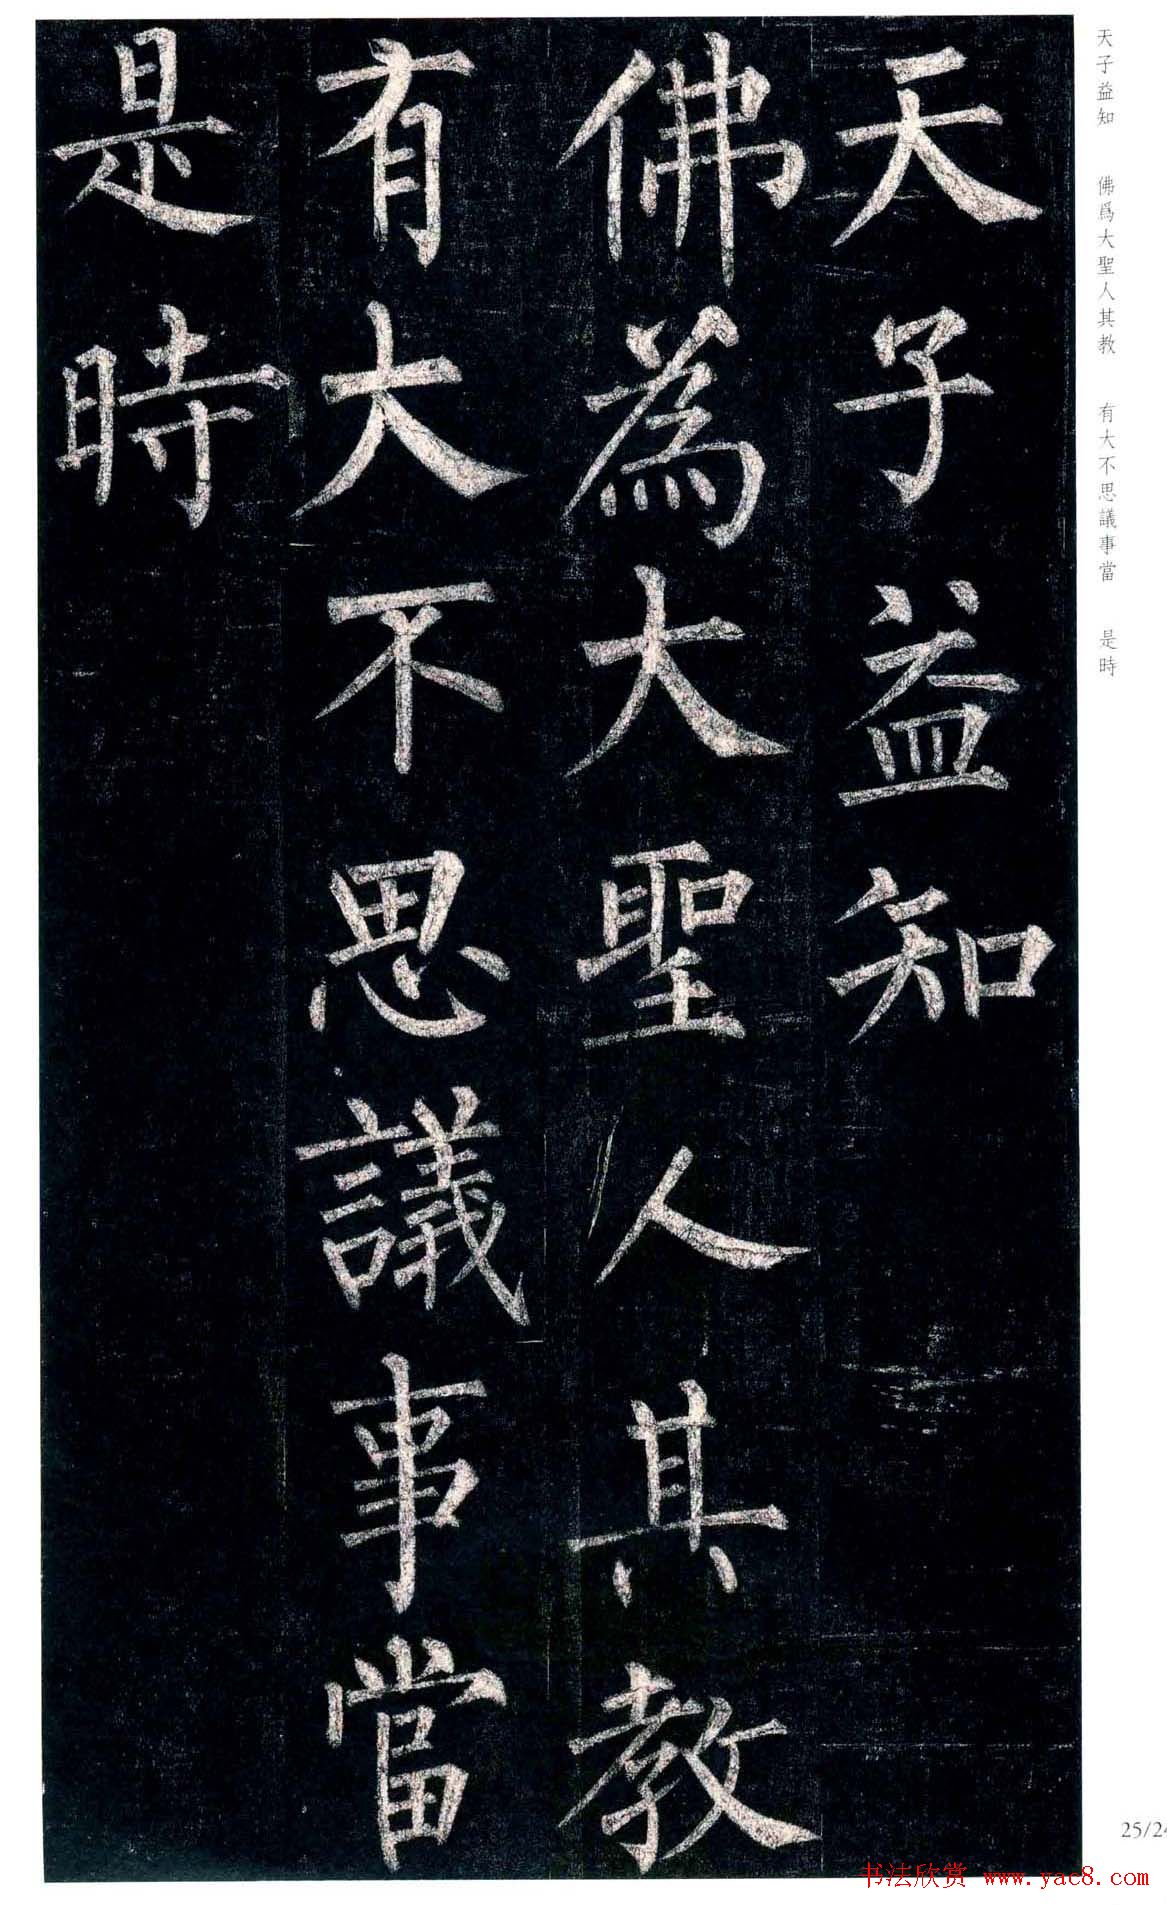 天子益知
佛為大聖人其教
有大不思議事當
是時
天子益知 佛爲大聖人其教 有大不思議事當 是時
25/24
书法欣赏 www.yac8.com